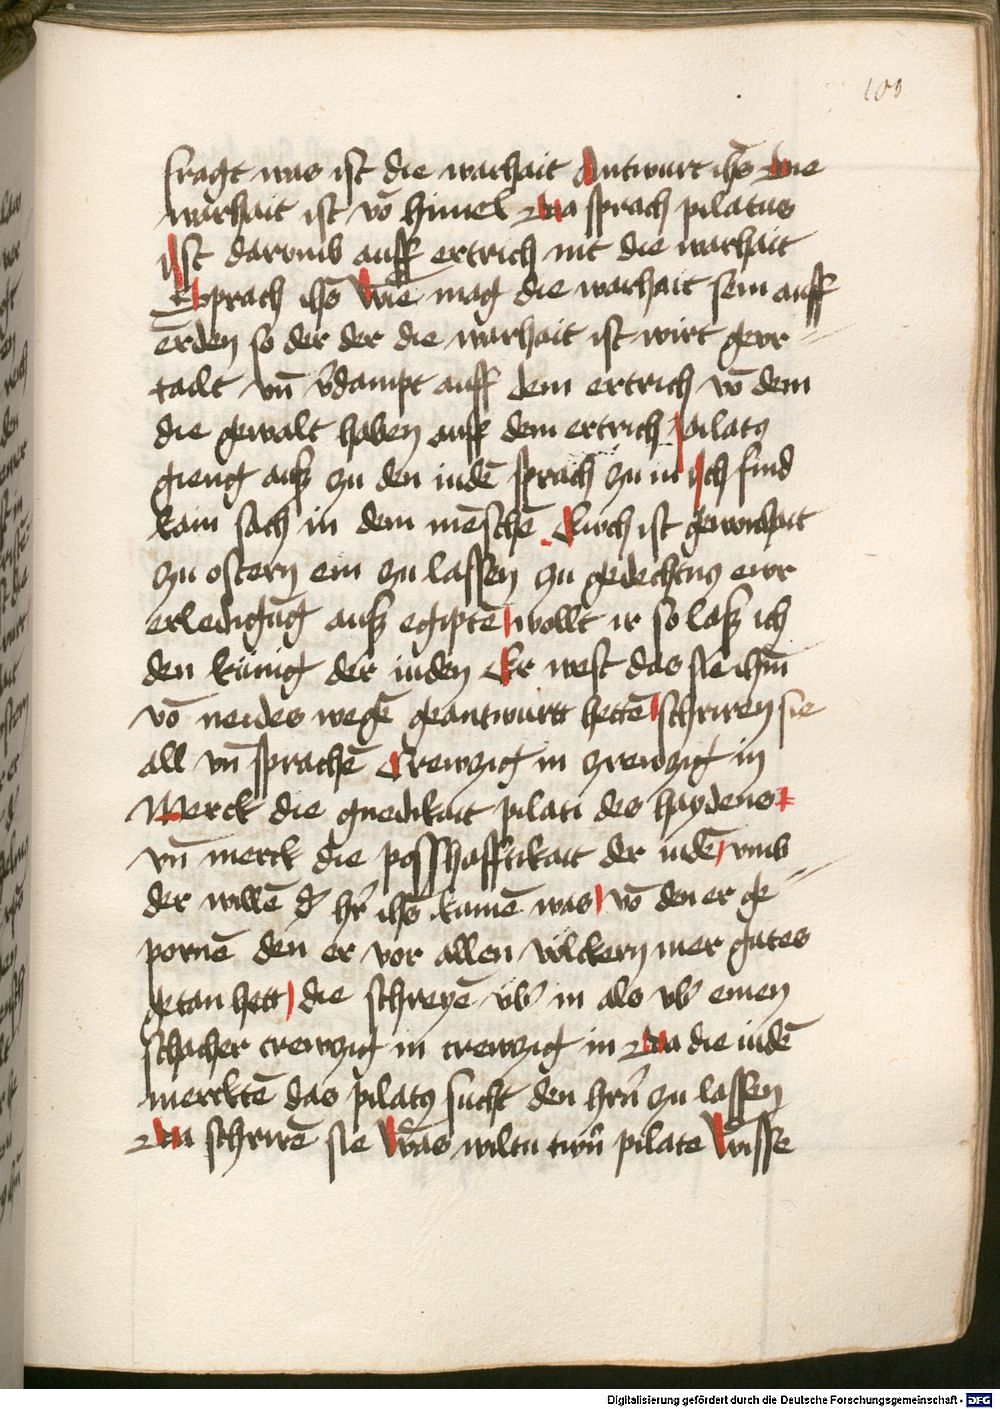 100
fragt was ist die warhait Antwurt ihs Die
warhait ist vō himel Da sprach pilatus
Ist darvmb auff ertrich nit die warhait
Sprach ihs Wie mag die warhait sein auff
erden so der der die warhait ist wirt gevr=
tailt vn̄ v̄dampt auff dem ertrich vō dem
die gewalt haben auff dem ertrich pilatꝰ
gieng auß zu den iudē sprach zu in Ich find
kain sach in dem mēschē Euch ist gewonhait
zu ostern ein zu lassen zu gedechtnꝰ ewr
erledigūg auß egiptē wollt ir so laß ich
den künig der iuden Er west das sie ihm̄
vō neides wegē geantwurt hettē schriren sie
all vn̄ sprachē Crewzig in crewzig in
Merck die gnedikait pilati des haydens
vn̄ merck die posshafftikait der iudē vmb
der willē d' hr̄ ihs kumē was vō den er ge=
pornē den er vor allen völckern mer gutes
getan hett die schreyē vb' in als vb' einen
schacher crewzig in crewzig in Da die iudē
mercktē das pilatꝰ sucht den hrn̄ zu lassen
Da schrirē sie Was wiltu tun̄ pilate Wisse
Digitalisierung gefördert durch die Deutsche Forschungsgemeinschaft - DFG